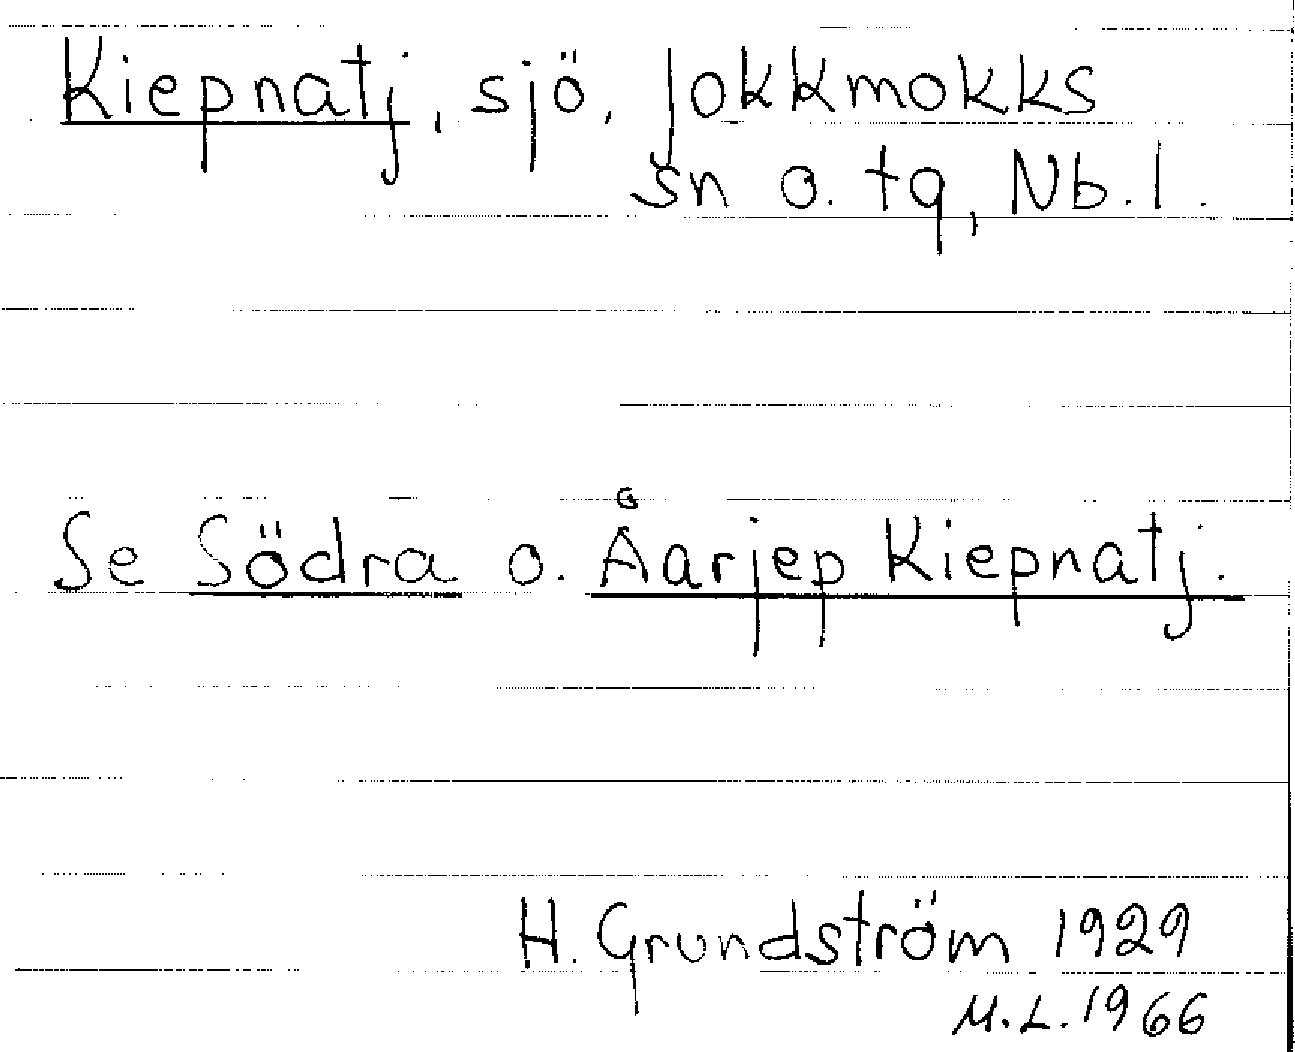 Kiepnatj, sjö, Jokkmokks
sn o. tg, Nb. l.
Se Södra o. Åarjep Kiepnatj.
H. Grundström 1929
M.L. 1966